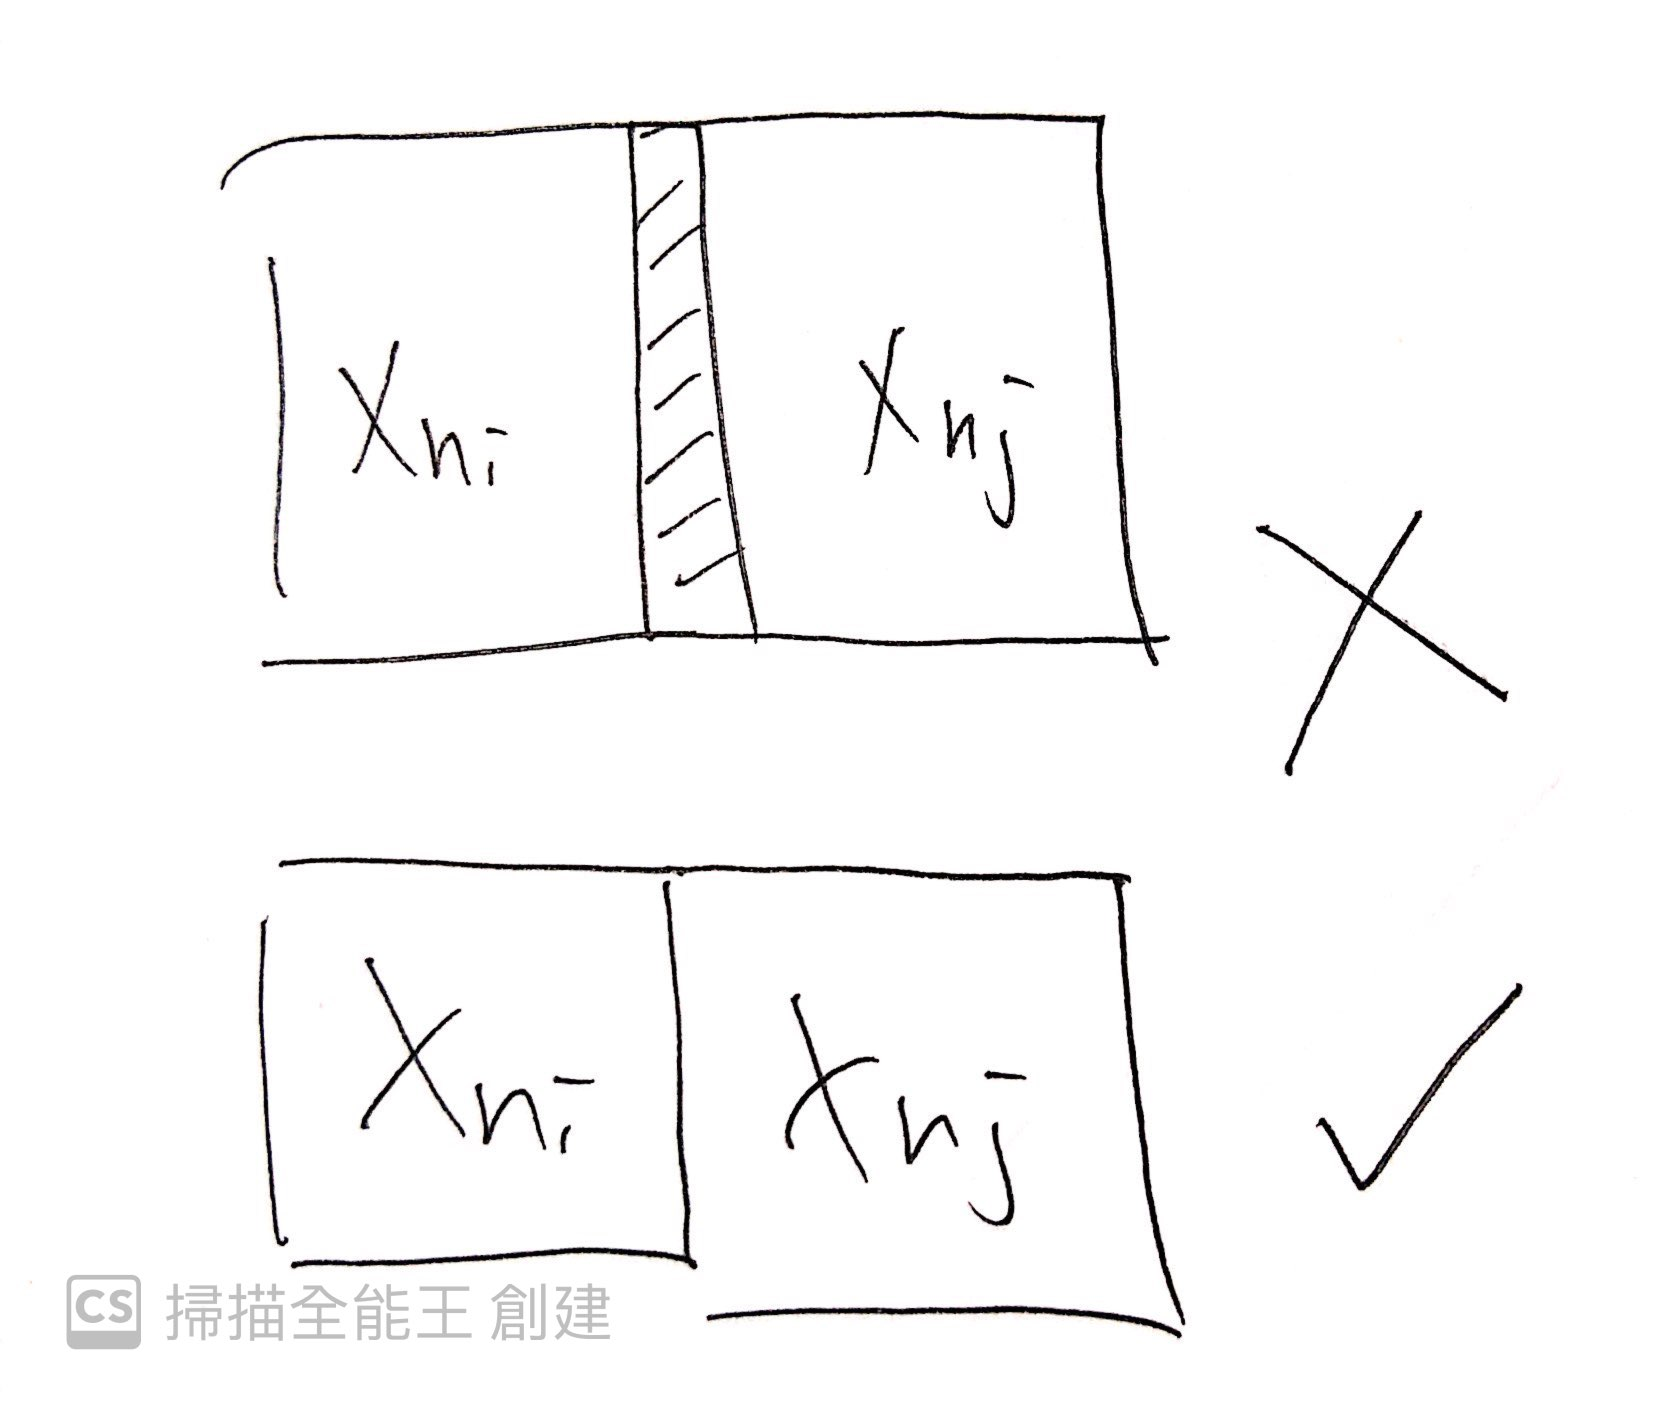 Xni Xnj
Xni Xnj
CS 掃描全能王 創建